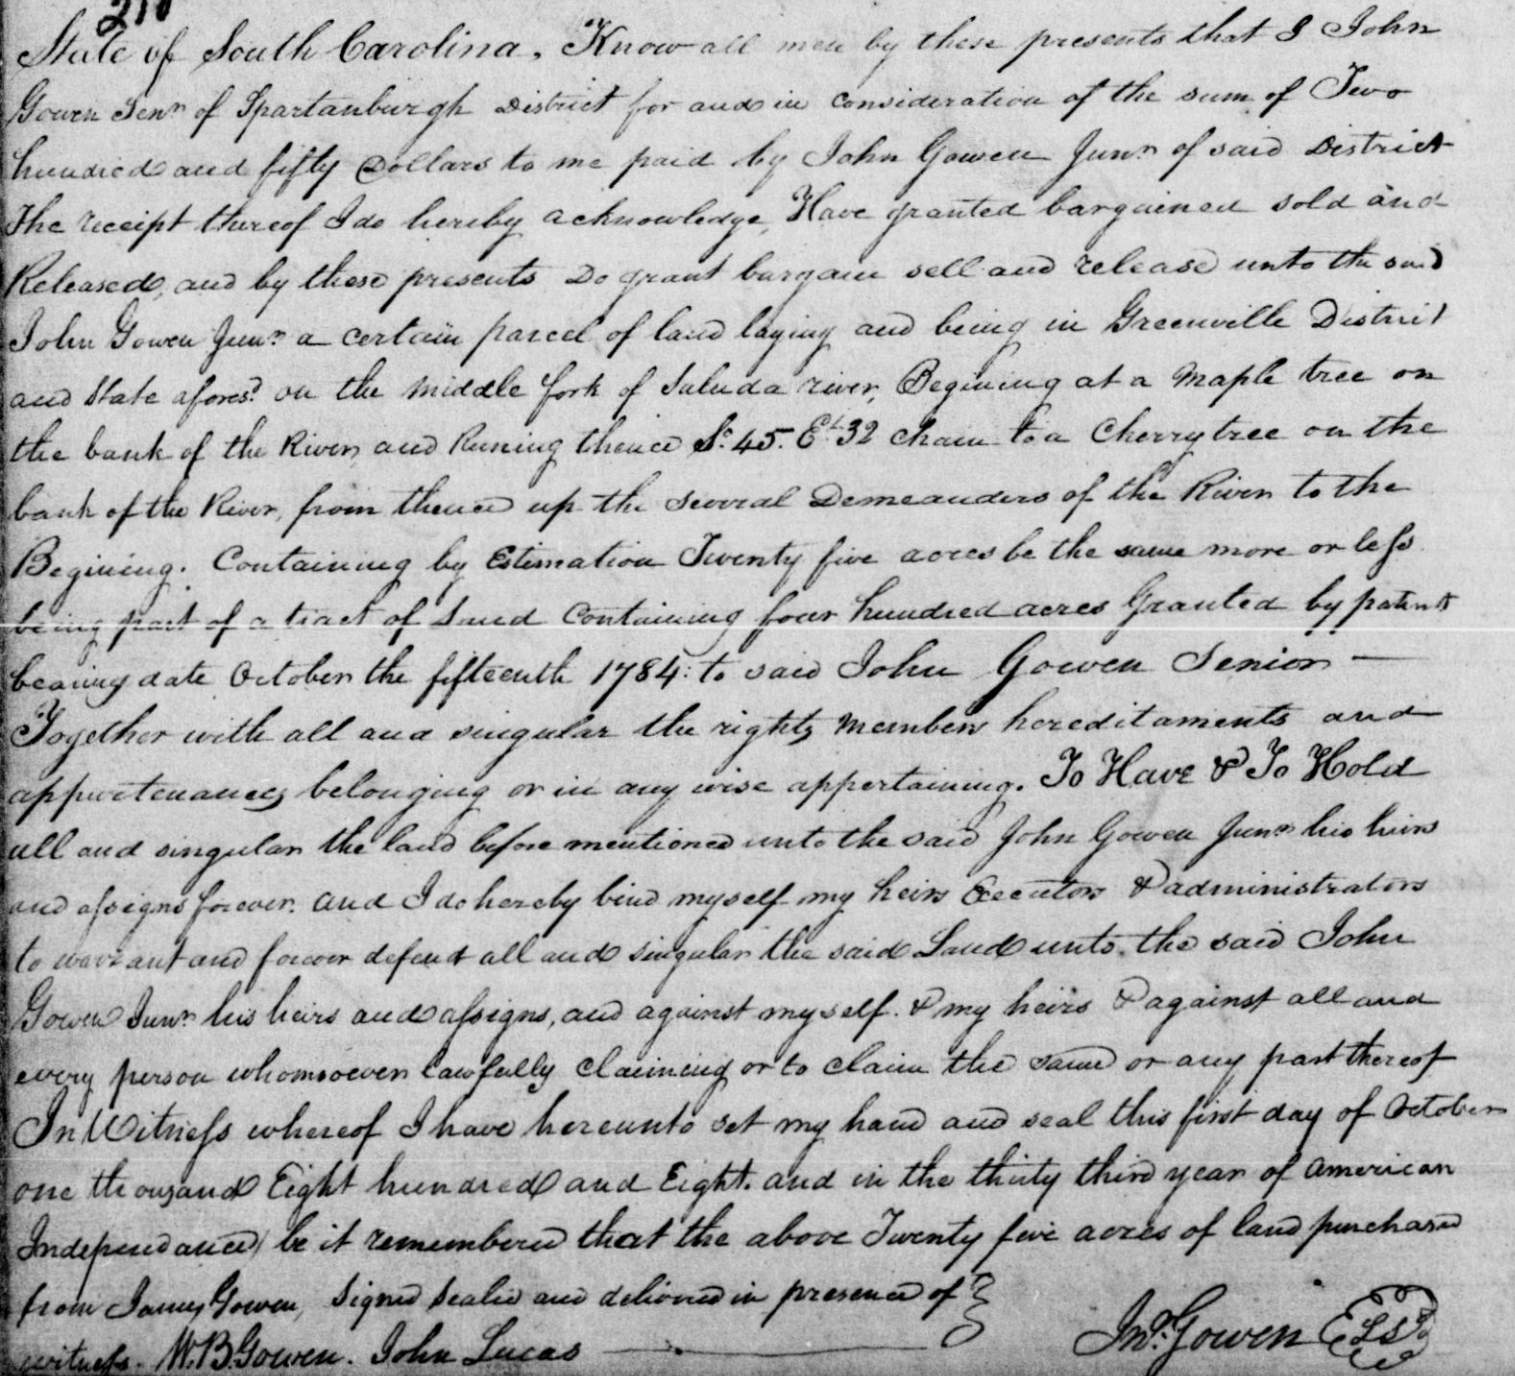 210
State of South Carolina, Know all men by these presents that I John
Gowen Senr of Spartanburgh District for and in consideration of the sum of Two
hundred and fifty Dollars to me paid by John Gowen Junr of said District
The receipt thereof I do hereby acknowledge, Have granted bargained sold and
Released, and by these presents Do grant bargain sell and release unto the said
John Gowen Junr a certain parcel of land laying and being in Greenville District
and State aforesd on the middle fork of Saluda river, Begining at a maple tree on
the bank of the River, and Runing thence So. 45. Et 32 chain to a Cherry tree on the
bank of the River, from thence up the several Demeanders of the River to the
Begining. Containing by Estimation Twenty five acres be the same more or less
being part of a tract of Land Containing four hundred acres Granted by patent
bearing date October the fifteenth 1784: to said John Gowen Senior —
Together with all and singular the rights, members hereditaments and
appurtenances belonging or in any wise appertaining. To Have & To Hold
all and singular the land before mentioned unto the said John Gowen Junr his heirs
and assigns forever. and I do hereby bind myself my heirs Executors & administrators
to warrant and forever defend all and singular the said Land unto the said John
Gowen Junr his heirs and assigns, and against myself. & my heirs & against all and
every person whomsoever lawfully claiming or to claim the same or any part thereof
In Witness whereof I have hereunto set my hand and seal this first day of October
one thousand Eight hundred and Eight. and in the thirty third year of American
Independance / be it remembered that the above Twenty five acres of land purchased
from James Gowen, Signed Sealed and delivered in presence of }
witness. W. B. Gowen. John Lucas — Jno. Gowen